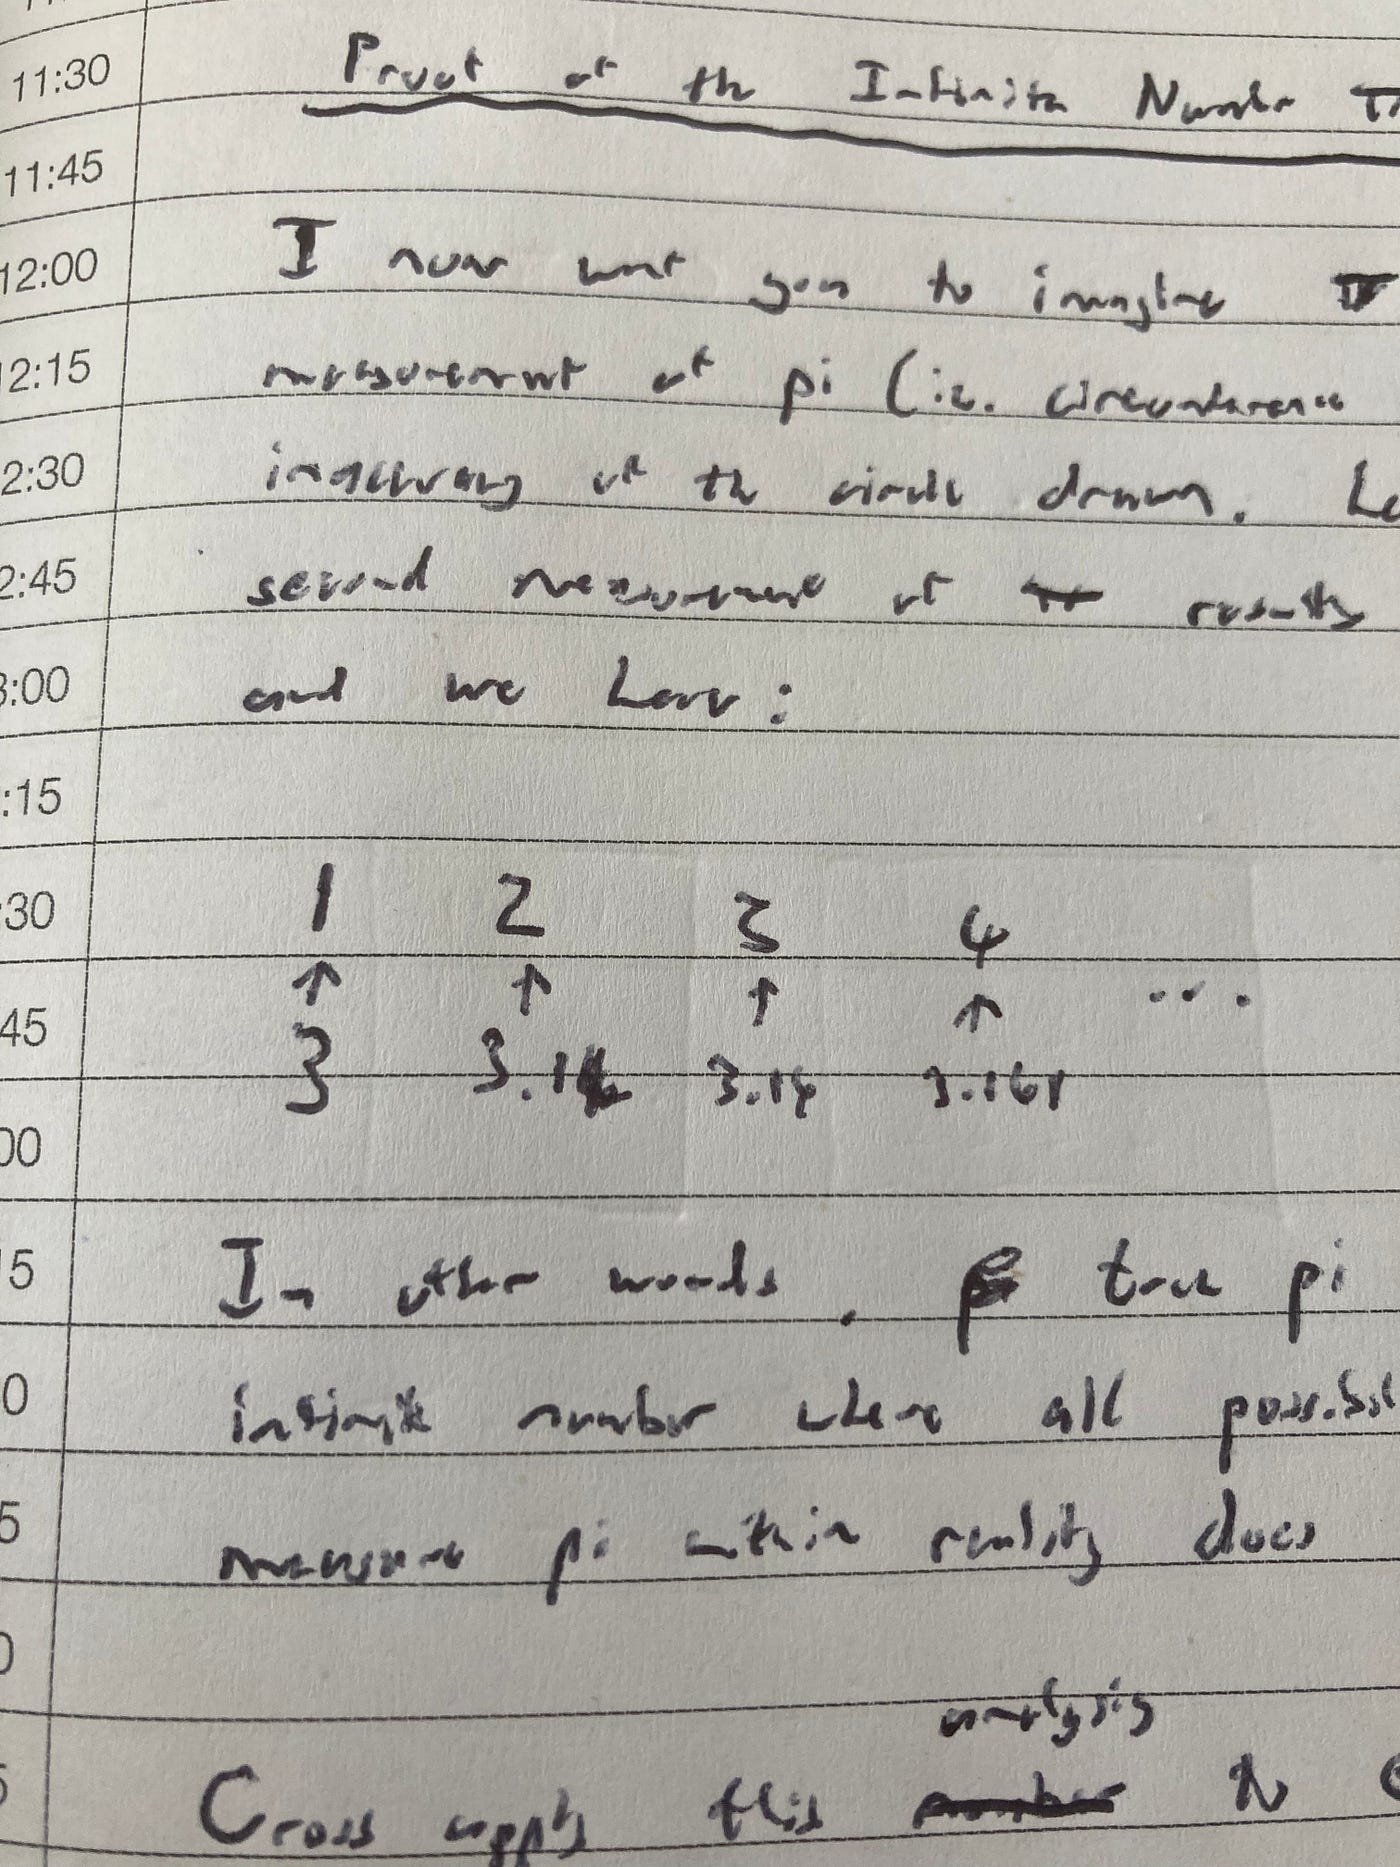 11:30 Proof of the Infinite Number
11:45
12:00 I now want you to imagine
12:15 measurement of pi (i.e. circumference
2:30 inaccuracy of the circle drawn.
2:45 second measurement of π
3:00 and we have:
:15
:30 1 2 3 4
↑ ↑ ↑ ↑ ...
45 3 3.14 3.141
00
5 In other words, true pi
0 infinite number where all
5 measure pi within reality does
0
analysis
5 Cross apply this to